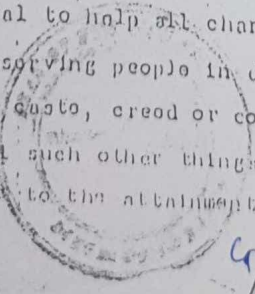 al to help all char
serving people in
casto, creod or co
such other thing
to the attainment